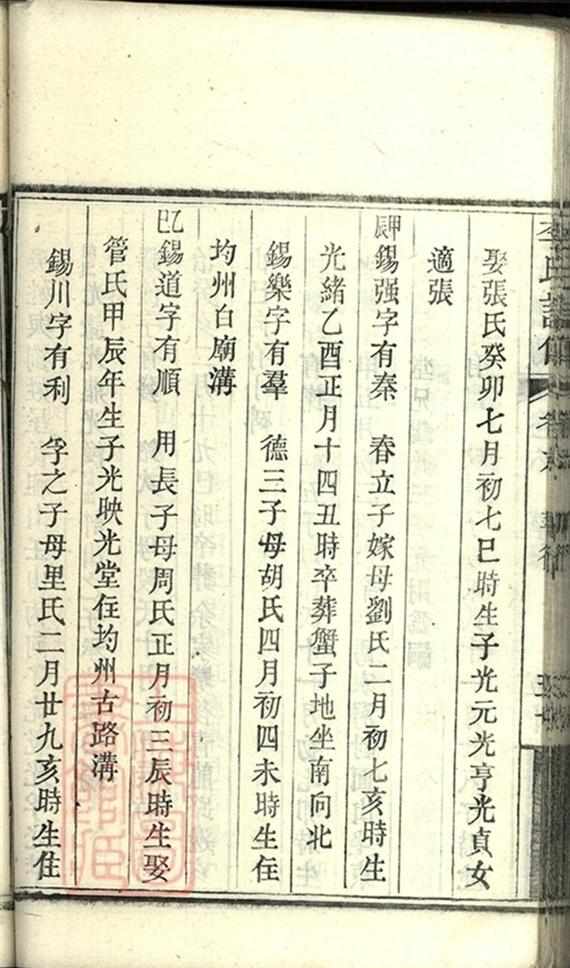 李氏譜
娶張氏癸卯七月初七巳時生子光元光亨光貞女
適張
甲辰錫强字有秦 春立子嫁母劉氏二月初七亥時生
光緒乙酉正月十四丑時卒葬蟹子地坐南向北
錫樂字有羣 德三子母胡氏四月初四未時生住
均州白廟溝
乙巳錫道字有順 用長子母周氏正月初三辰時生娶
管氏甲辰年生子光映光堂住均州古路溝
錫川字有利 孚之子母里氏二月廿九亥時生住